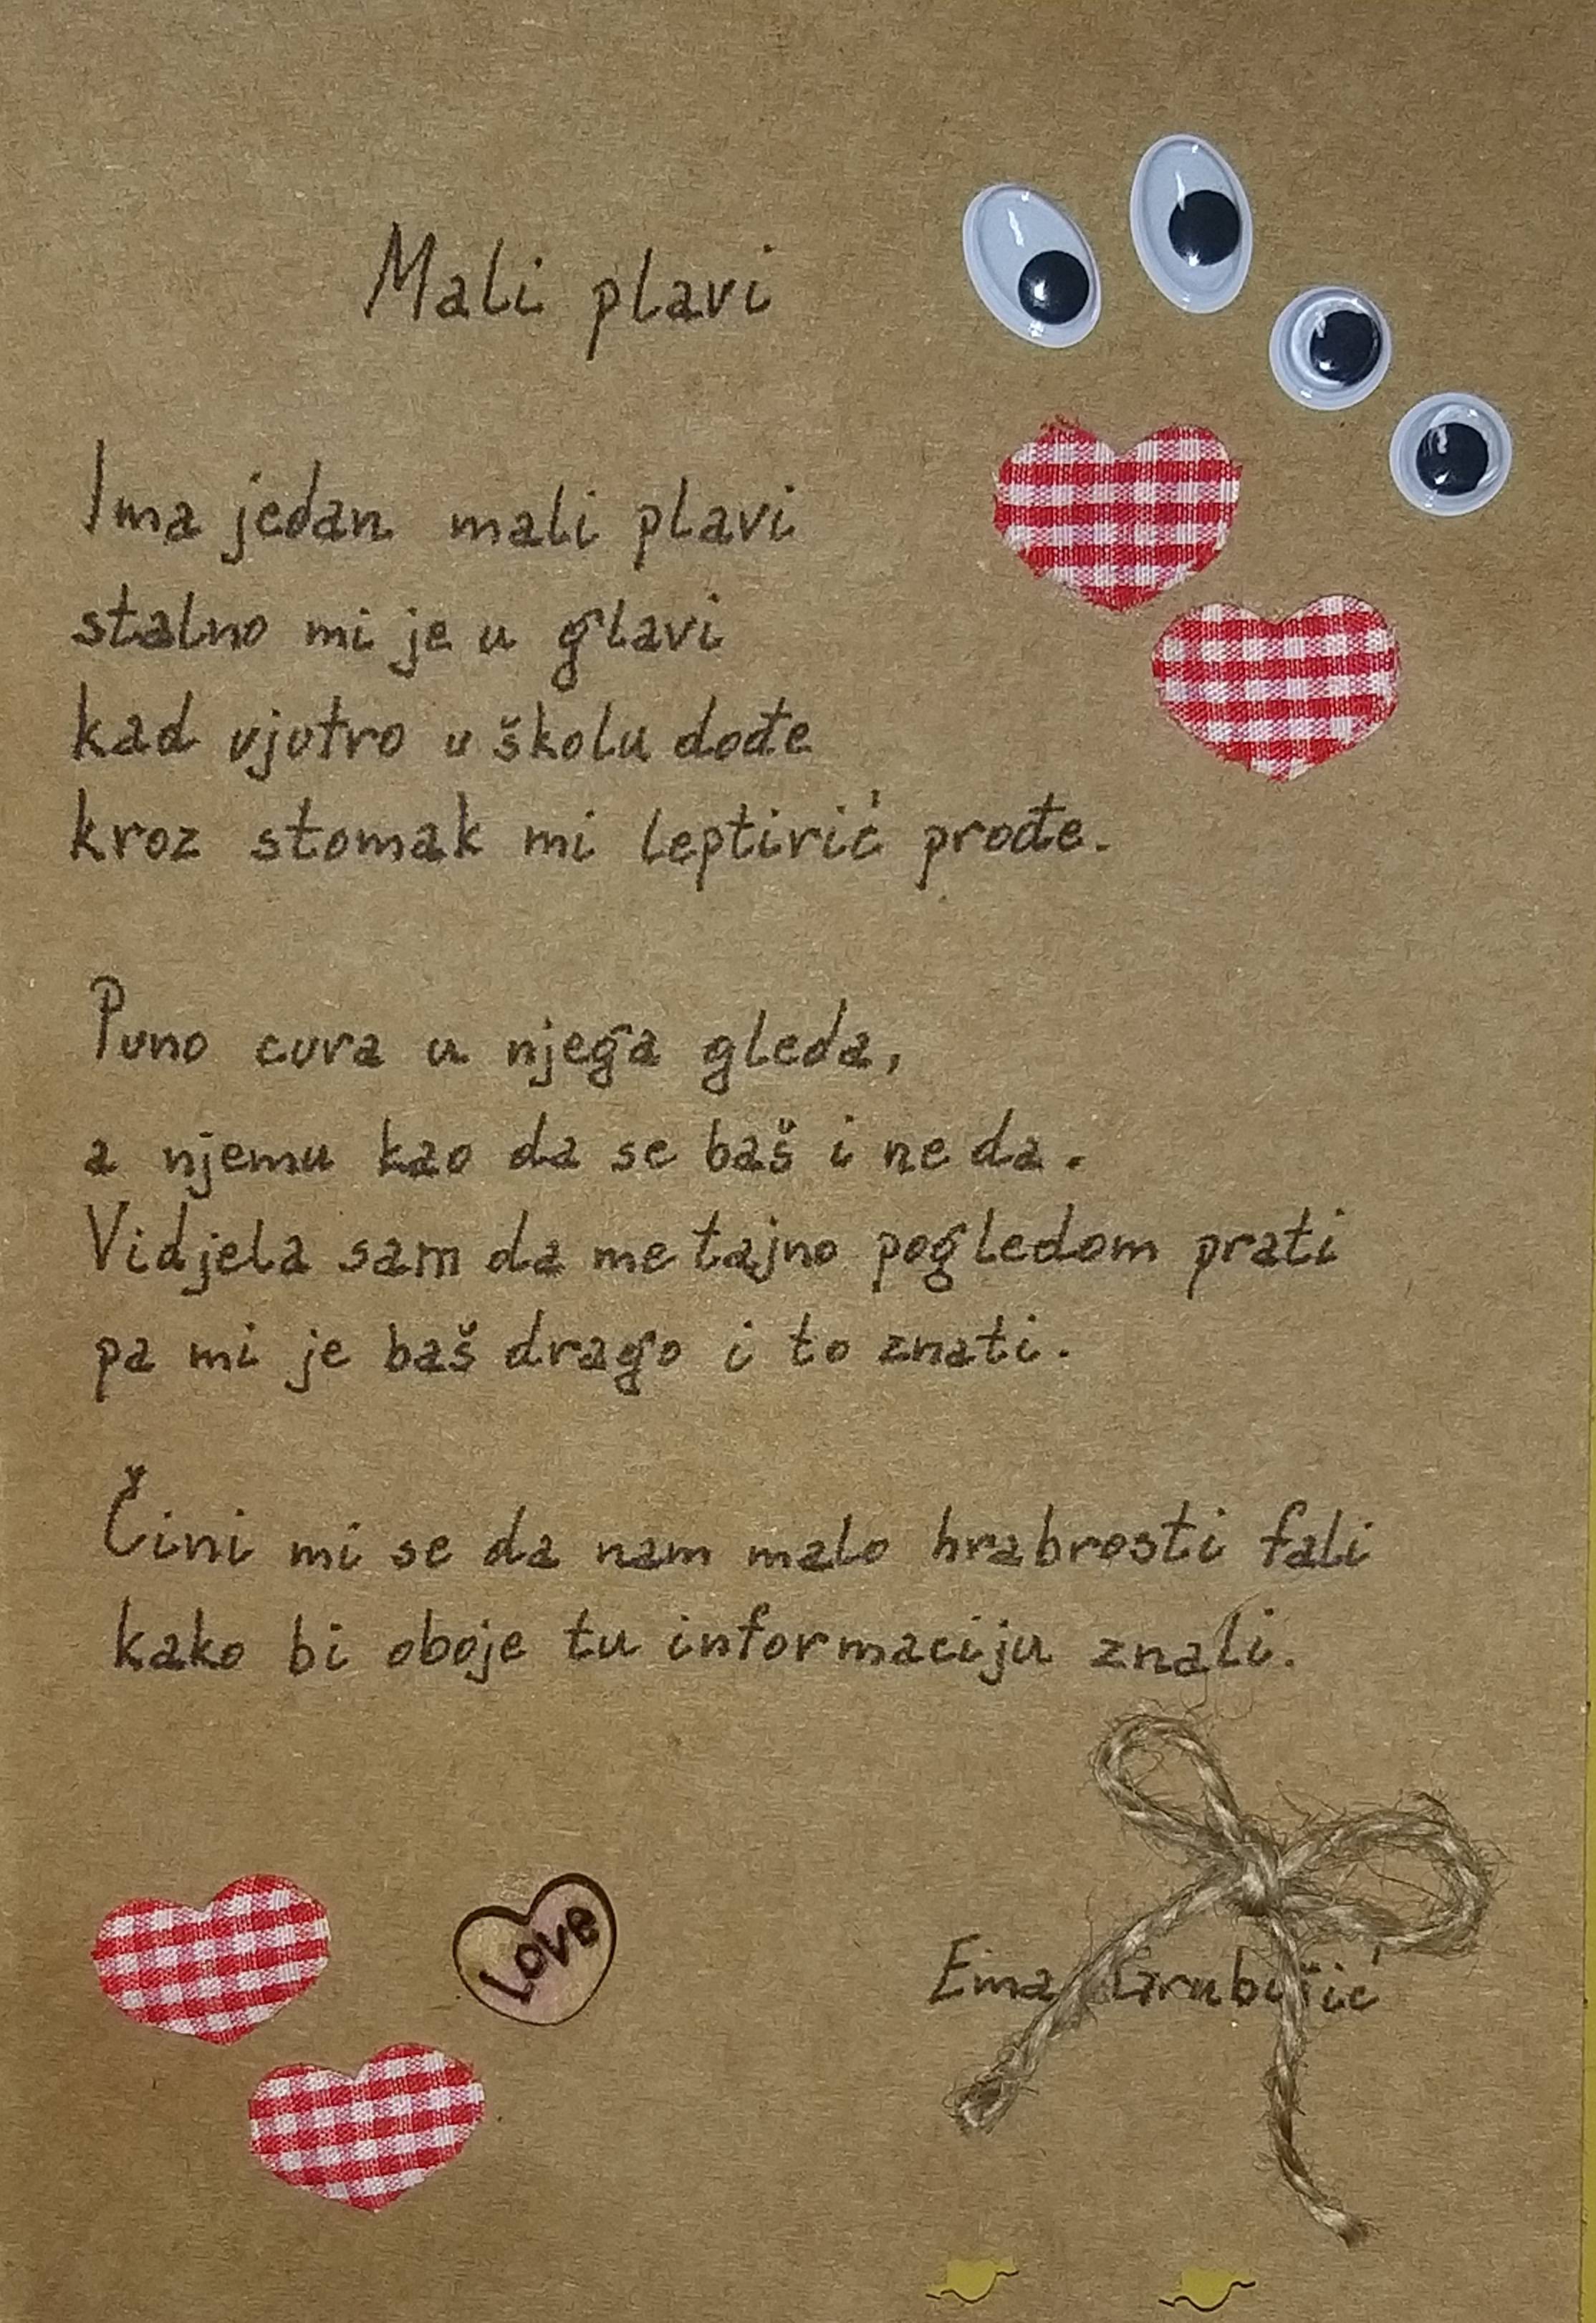 Mali plavi
Ima jedan mali plavi
stalno mi je u glavi
kad ujutro u školu dođe
kroz stomak mi leptirić prođe.
Puno cura u njega gleda,
a njemu kao da se baš i ne da.
Vidjela sam da me tajno pogledom prati
pa mi je baš drago i to znati.
Čini mi se da nam malo hrabrosti fali
kako bi oboje tu informaciju znali.
Love
Ema Grubišić